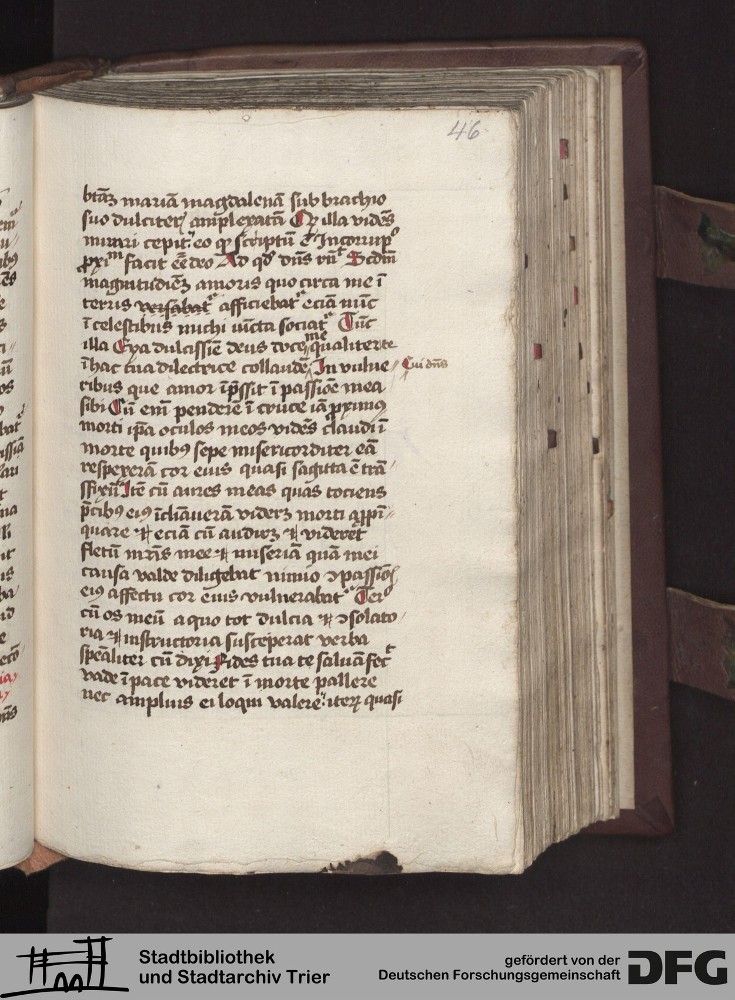 46
btāʒ mariā magdalenā sub brachio
suo dulciter amplexatā Qʒ illa vidēs
mirari cepit eo qʒ scriptū ē Incorrup
facit eē deo Ad qd dns Scdm
magnitudinēʒ amoris quo circa me ī
terris versabat afficiebat eciā nūc
ī celestibus michi iūcta sociat Tūc
illa Eya dulcissīe deus doce me qualiter te
ī hac tua dilectrice collaudē In vulne
Cui dns
ribus que amor īpssit ī passiōe mea
sibi Cū em pendere ī cruce iā pximus
morti ipa oculos meos vidēs claudi ī
morte quibus sepe misericorditer eā
respexerā cor eius quasi sagitta ē trā
ssfixū Itē cū aures meas quas tociens
pcibus eius īcliāverā viderʒ morti appī
quare et eciā cū audirʒ et videret
fletū mris mee et miseriā quā mei
causa valde diligebat nimio ↄpassiōis
eius affectu cor eius vulnerabat Tercio
cū os meū a quo tot dulcia et ↄsolato
ria et instructoria susceperat verba
speāliter cū dixi Fides tua te saluā fec
vade ī pace videret ī morte pallere
nec amplius ei loqui valere iterʒ quasi
Stadtbibliothek
und Stadtarchiv Trier
gefördert von der
Deutschen Forschungsgemeinschaft
DFG